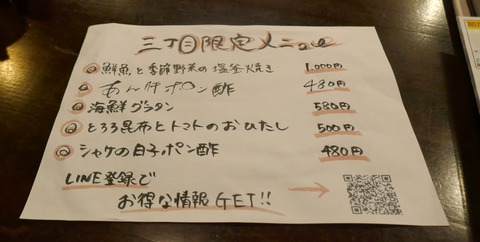 三丁目限定メニュー
鮮魚と季節野菜の塩釜焼き 1,000円
あん肝ポン酢 480円
海鮮グラタン 580円
とろろ昆布とトマトのおひたし 500円
シャケの白子ポン酢 480円
LINE登録で
お得な情報GET!!